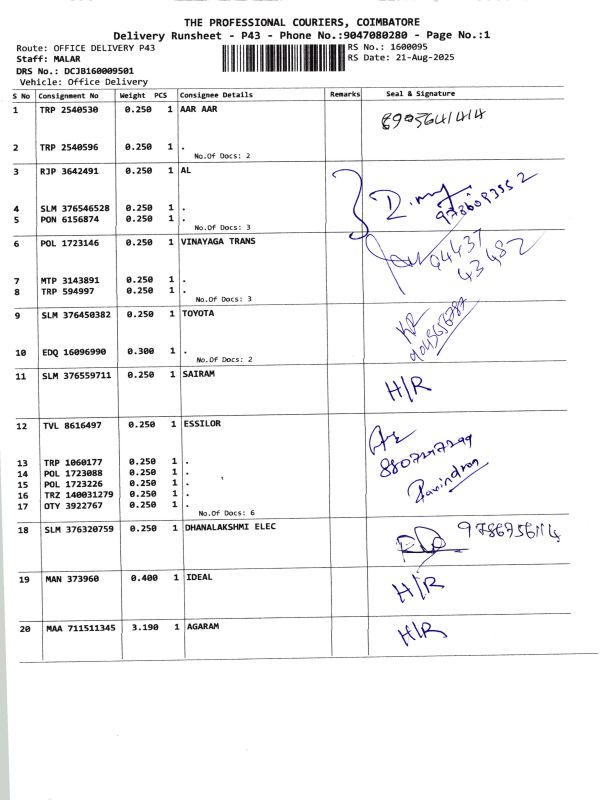 THE PROFESSIONAL COURIERS, COIMBATORE
Delivery Runsheet - P43 - Phone No.:9047080280 - Page No.:1
Route: OFFICE DELIVERY P43 RS No.: 1600095
Staff: MALAR RS Date: 21-Aug-2025
DRS No.: DCJB160009501
Vehicle: Office Delivery
S No Consignment No Weight PCS Consignee Details Remarks Seal & Signature
1 TRP 2540530 0.250 1 AAR AAR
2 TRP 2540596 0.250 1 .
No.Of Docs: 2
3 RJP 3642491 0.250 1 AL
4 SLM 376546528 0.250 1 .
5 PON 6156874 0.250 1 .
No.Of Docs: 3
6 POL 1723146 0.250 1 VINAYAGA TRANS 94437
43482
7 MTP 3143891 0.250 1 .
8 TRP 594997 0.250 1 .
No.Of Docs: 3
9 SLM 376450382 0.250 1 TOYOTA
10 EDQ 16096990 0.300 1 .
No.Of Docs: 2
11 SLM 376559711 0.250 1 SAIRAM H/R
12 TVL 8616497 0.250 1 ESSILOR
13 TRP 1060177 0.250 1 .
14 POL 1723088 0.250 1 .
15 POL 1723226 0.250 1 .
16 TRZ 140031279 0.250 1 .
17 OTY 3922767 0.250 1 .
Ravindran
No.Of Docs: 6
18 SLM 376320759 0.250 1 DHANALAKSHMI ELEC
19 MAN 373960 0.400 1 IDEAL H/R
20 MAA 711511345 3.190 1 AGARAM H/R